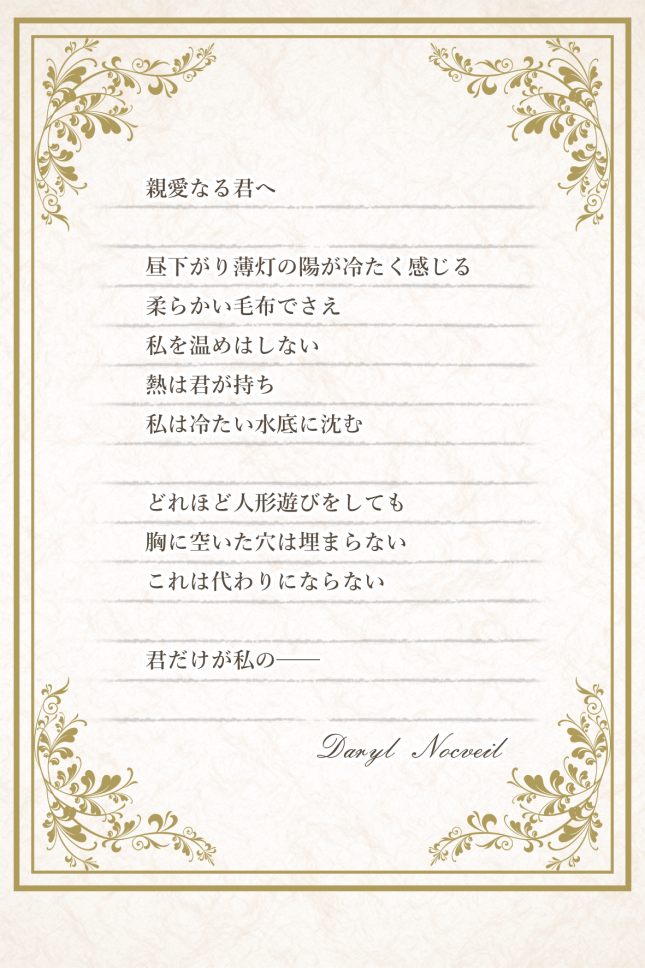 親愛なる君へ
昼下がり薄灯の陽が冷たく感じる
柔らかい毛布でさえ
私を温めはしない
熱は君が持ち
私は冷たい水底に沈む
どれほど人形遊びをしても
胸に空いた穴は埋まらない
これは代わりにならない
君だけが私の――
Daryl Nocveil